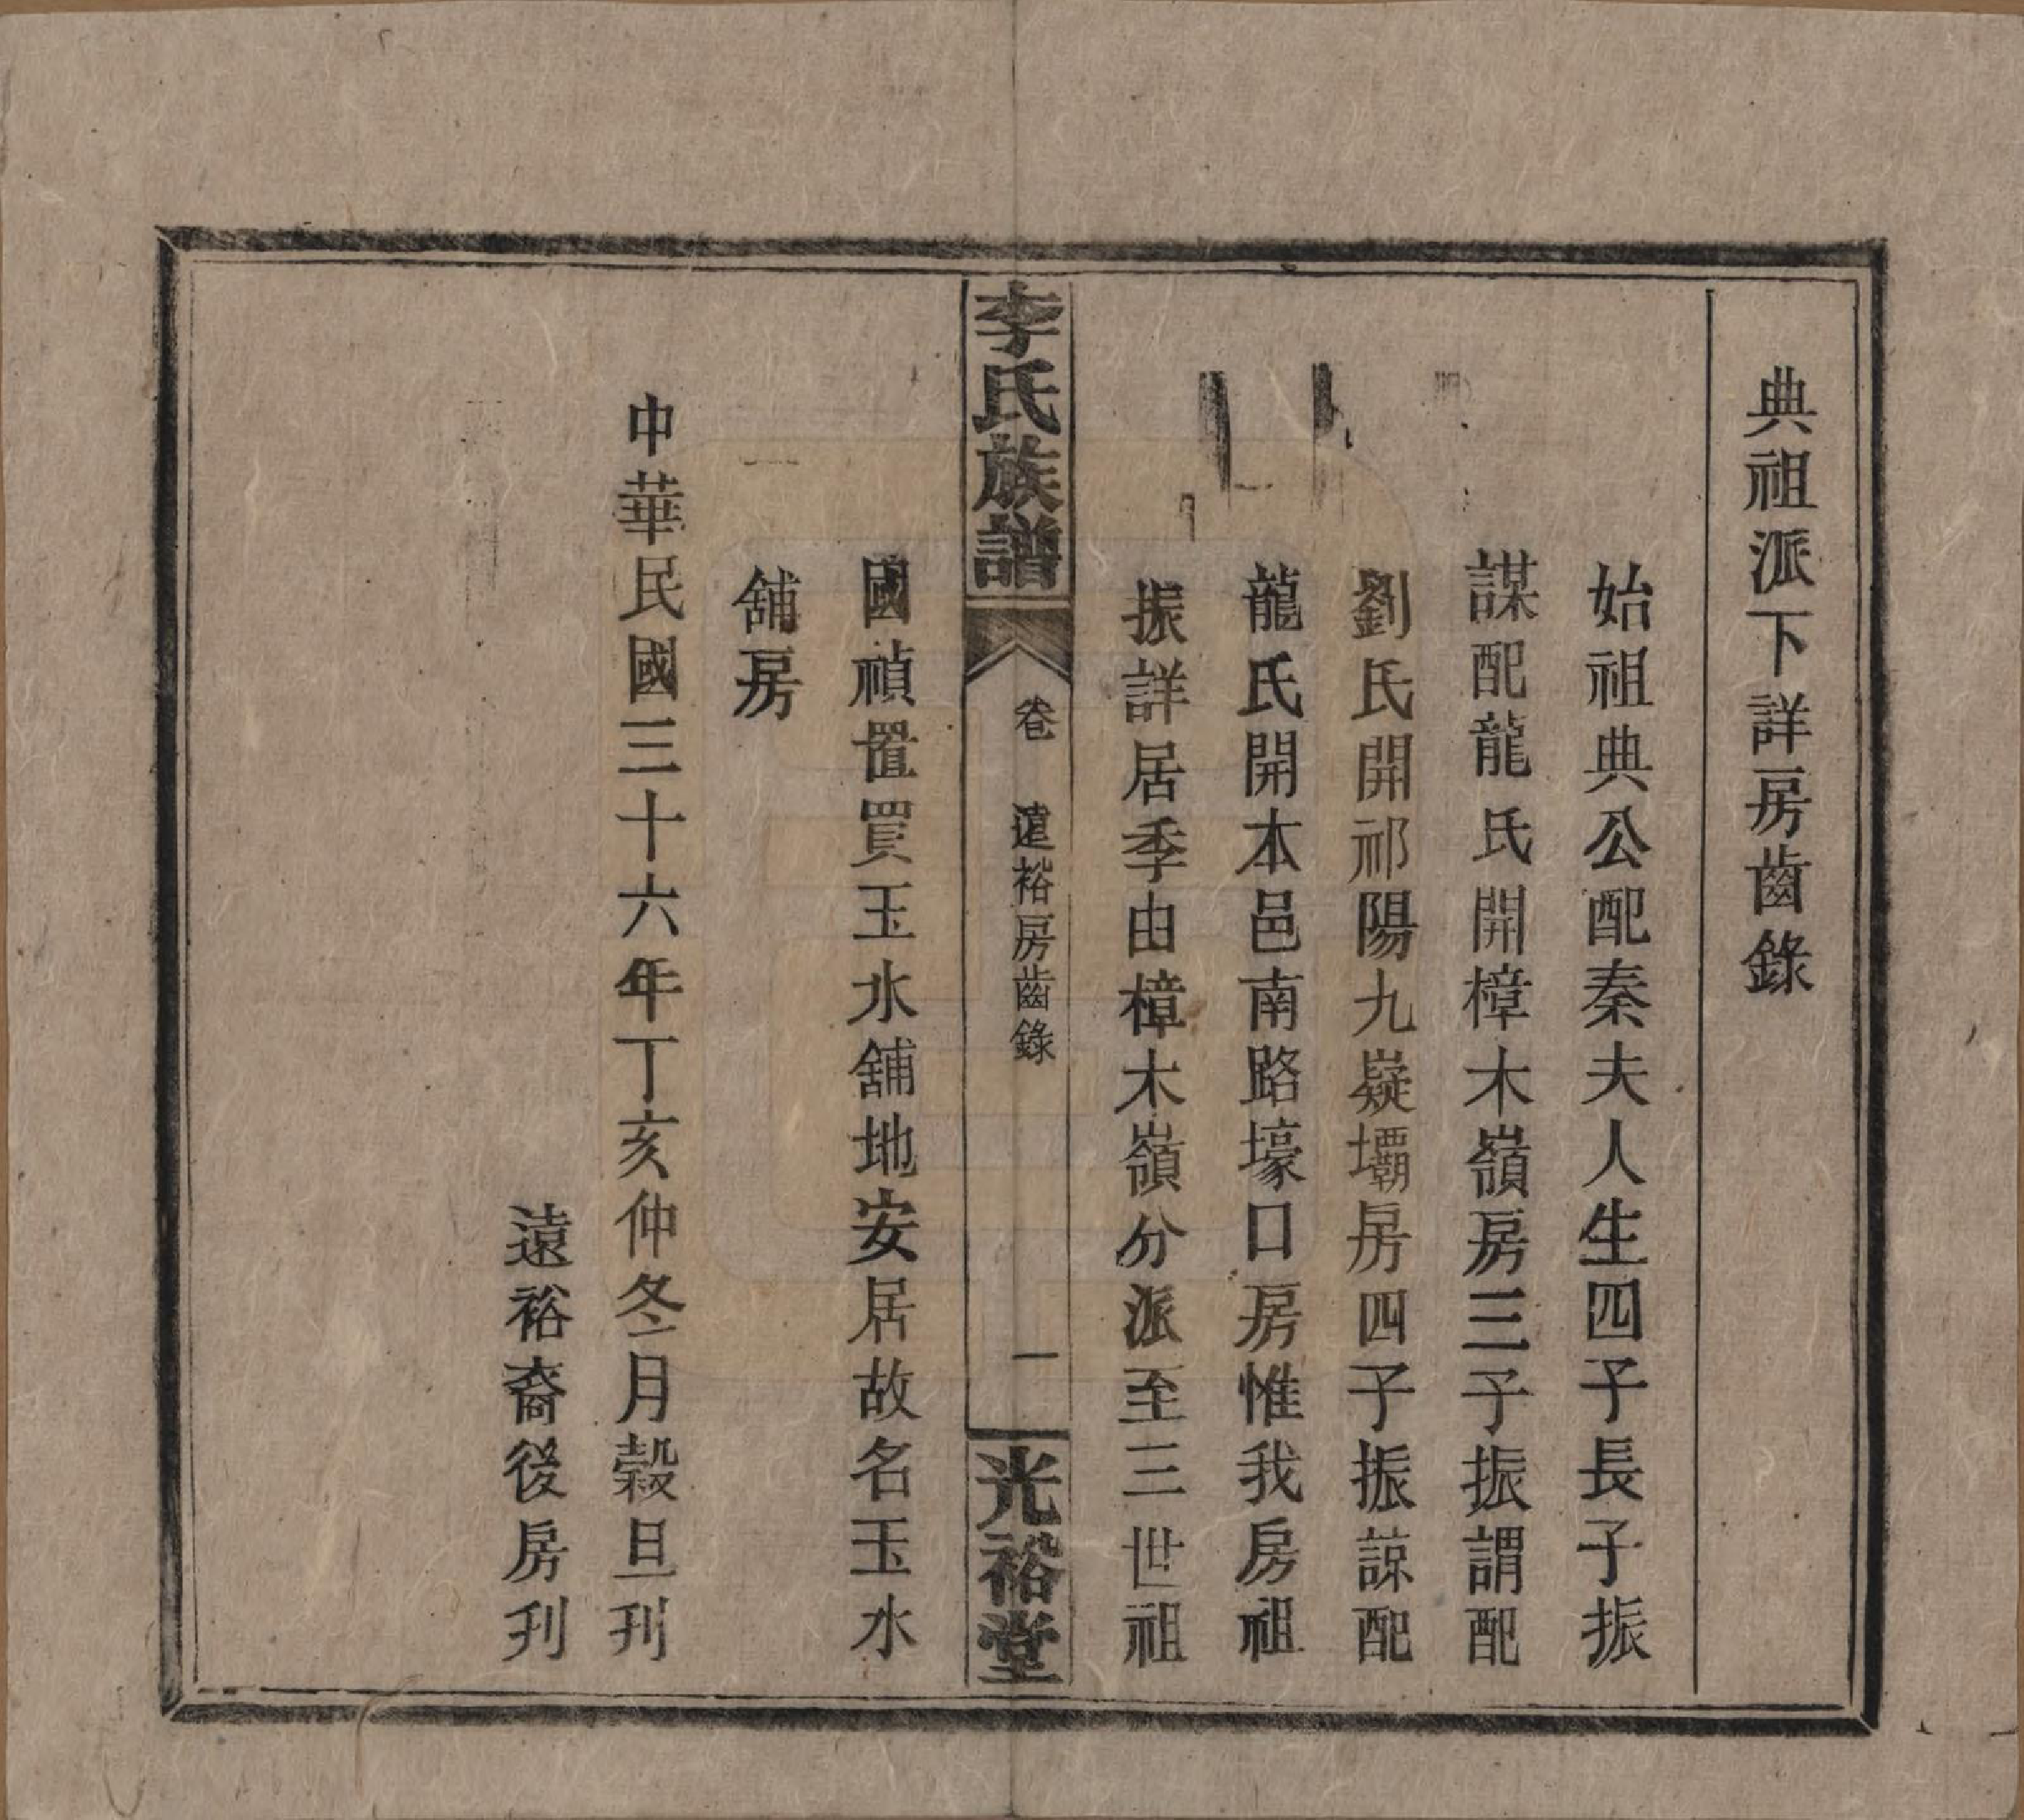 典祖派下詳房齒錄
始祖典公配秦夫人生四子長子振
謀配龍氏開樟木嶺房三子振謂配
劉氏開祁陽九嶷壩房四子振諒配
龍氏開本邑南路壕口房惟我房祖
振詳居季由樟木嶺分派至三世祖
李氏族譜
卷 遠裕房齒錄
一
光裕堂
國禎置買玉水舖地安居故名玉水
舖房
中華民國三十六年丁亥仲冬月穀旦刊
遠裕裔後房刋